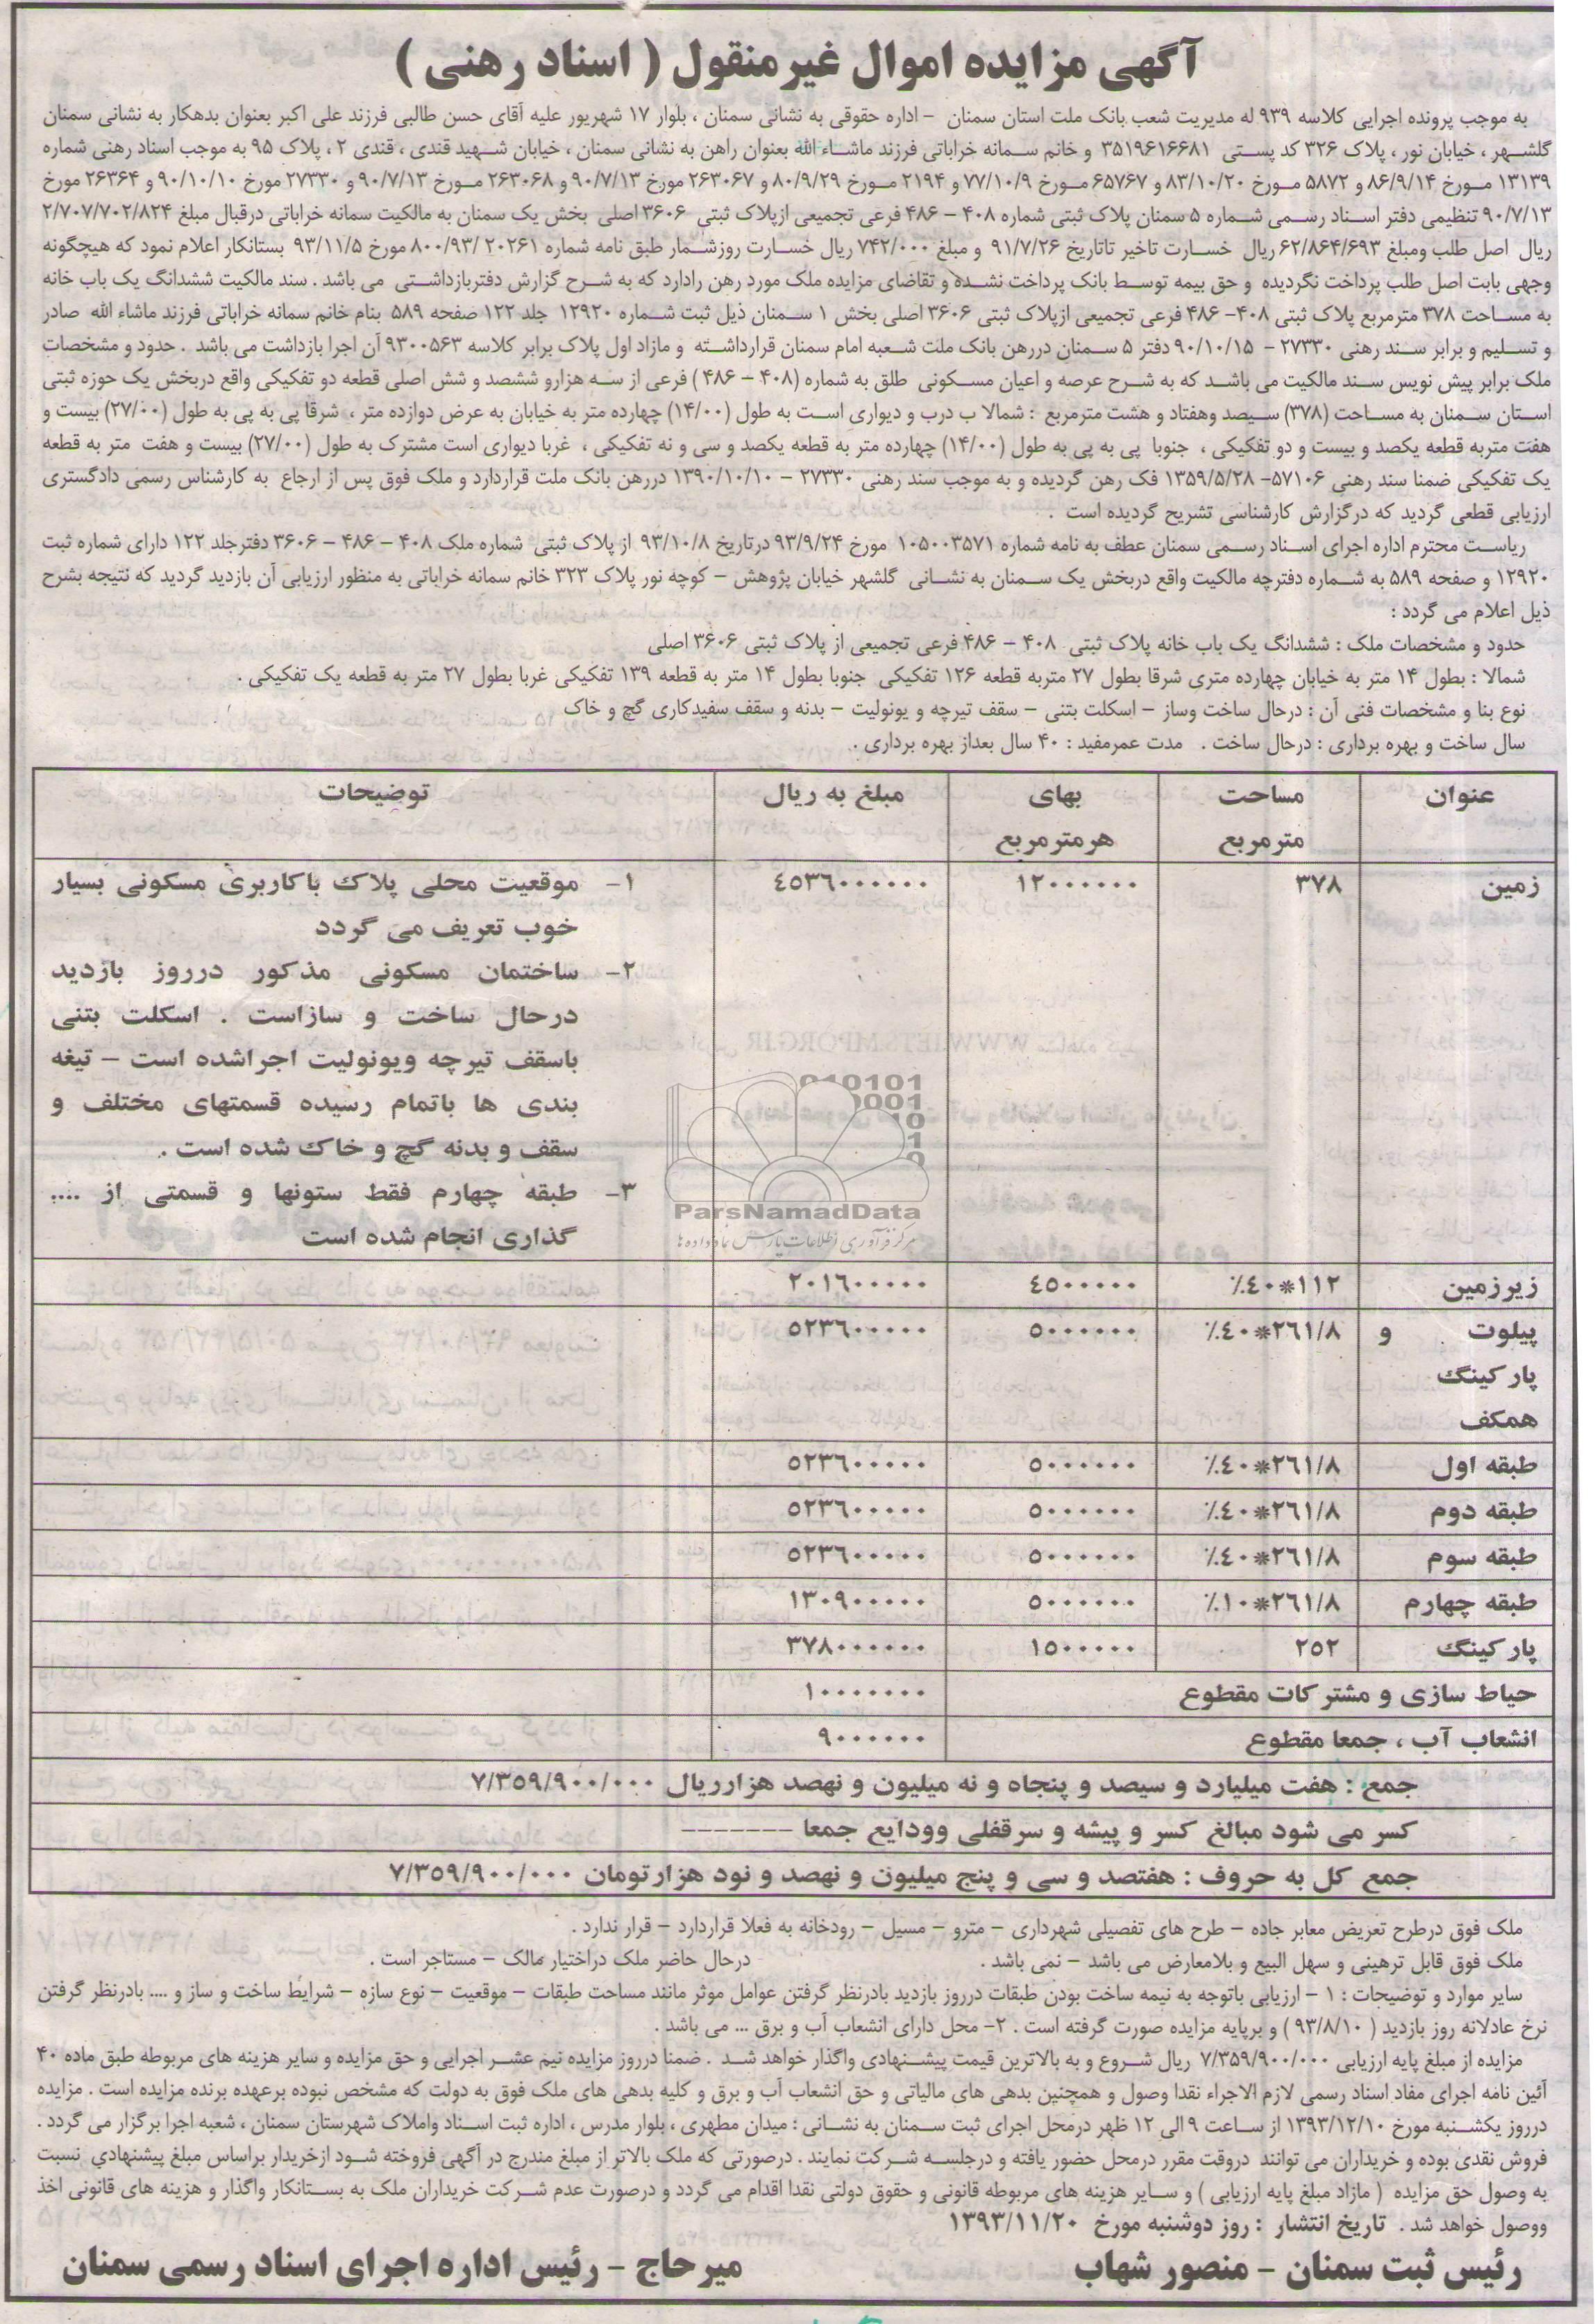 آگهی مزایده اموال غیرمنقول ( اسناد رهنی )
به موجب پرونده اجرایی کلاسه ۹۳۹ له مدیریت شعب بانک ملت استان سمنان – اداره حقوقی به نشانی سمنان ، بلوار ۱۷ شهریور علیه آقای حسن طالبی فرزند علی اکبر بعنوان بدهکار به نشانی سمنان
گلشهر ، خیابان نور ، پلاک ۳۲۶ کد پستی ۳۵۱۹۶۱۶۶۸۱ و خانم سمانه خراباتی فرزند ماشاء الله بعنوان راهن به نشانی سمنان ، خیابان شهید قندی ، قندی ۲ ، پلاک ۹۵ به موجب اسناد رهنی شماره
۱۳۱۳۹ مورخ ۸۶/۹/۱۴ و ۵۸۷۲ مورخ ۸۳/۱۰/۲۰ و ۶۵۷۶۷ مورخ ۷۷/۱۰/۹ و ۲۱۹۴ مورخ ۸۰/۹/۲۹ و ۲۶۳۰۶۷ مورخ ۹۰/۷/۱۳ و ۲۶۳۰۶۸ مورخ ۹۰/۷/۱۳ و ۲۷۳۳۰ مورخ ۹۰/۱۰/۱۰ و ۲۶۳۶۴ مورخ
۹۰/۷/۱۳ تنظیمی دفتر اسناد رسمی شماره ۵ سمنان پلاک ثبتی شماره ۴۰۸ – ۴۸۶ فرعی تجمیعی ازپلاک ثبتی ۳۶۰۶ اصلی بخش یک سمنان به مالکیت سمانه خراباتی درقبال مبلغ ۲/۷۰۷/۷۰۲/۸۲۴
ریال اصل طلب ومبلغ ۶۲/۸۶۴/۶۹۳ ریال خسارت تاخیر تاتاریخ ۹۱/۷/۲۶ و مبلغ ۷۴۲/۰۰۰ ریال خسارت روزشمار طبق نامه شماره ۲۰۲۶۱ /۸۰۰/۹۳ مورخ ۹۳/۱۱/۵ بستانکار اعلام نمود که هیچگونه
وجهی بابت اصل طلب پرداخت نگردیده و حق بیمه توسط بانک پرداخت نشده و تقاضای مزایده ملک مورد رهن رادارد که به شرح گزارش دفتربازداشتی می باشد . سند مالکیت ششدانگ یک باب خانه
به مساحت ۳۷۸ مترمربع پلاک ثبتی ۴۰۸- ۴۸۶ فرعی تجمیعی ازپلاک ثبتی ۳۶۰۶ اصلی بخش ۱ سمنان ذیل ثبت شماره ۱۲۹۲۰ جلد ۱۲۲ صفحه ۵۸۹ بنام خانم سمانه خراباتی فرزند ماشاء الله صادر
و تسلیم و برابر سند رهنی ۲۷۳۳۰ – ۹۰/۱۰/۱۵ دفتر ۵ سمنان دررهن بانک ملت شعبه امام سمنان قرارداشته و مازاد اول پلاک برابر کلاسه ۹۳۰۰۵۶۳ آن اجرا بازداشت می باشد . حدود و مشخصات
ملک برابر پیش نویس سند مالکیت می باشد که به شرح عرصه و اعیان مسکونی طلق به شماره (۴۰۸ – ۴۸۶ ) فرعی از سه هزارو ششصد و شش اصلی قطعه دو تفکیکی واقع دربخش یک حوزه ثبتی
استان سمنان به مساحت (۳۷۸) سیصد وهفتاد و هشت مترمربع : شمالا ب درب و دیواری است به طول (۱۴/۰۰) چهارده متر به خیابان به عرض دوازده متر ، شرقا پی به پی به طول (۲۷/۰۰) بیست و
هفت متربه قطعه یکصد و بیست و دو تفکیکی ، جنوبا پی به پی به طول (۱۴/۰۰) چهارده متر به قطعه یکصد و سی و نه تفکیکی ، غربا دیواری است مشترک به طول (۲۷/۰۰) بیست و هفت متر به قطعه
یک تفکیکی ضمنا سند رهنی ۵۷۱۰۶- ۱۳۵۹/۵/۲۸ فک رهن گردیده و به موجب سند رهنی ۲۷۳۳۰ – ۱۳۹۰/۱۰/۱۰ دررهن بانک ملت قراردارد و ملک فوق پس از ارجاع به کارشناس رسمی دادگستری
ارزیابی قطعی گردید که درگزارش کارشناسی تشریح گردیده است .
ریاست محترم اداره اجرای اسناد رسمی سمنان عطف به نامه شماره ۱۰۵۰۰۳۵۷۱ مورخ ۹۳/۹/۲۴ درتاریخ ۹۳/۱۰/۸ از پلاک ثبتی شماره ملک ۴۰۸ – ۴۸۶ – ۳۶۰۶ دفترجلد ۱۲۲ دارای شماره ثبت
۱۲۹۲۰ و صفحه ۵۸۹ به شماره دفترچه مالکیت واقع دربخش یک سمنان به نشانی گلشهر خیابان پژوهش – کوچه نور پلاک ۳۲۳ خانم سمانه خراباتی به منظور ارزیابی آن بازدید گردید که نتیجه بشرح
ذیل اعلام می گردد :
حدود و مشخصات ملک : ششدانگ یک باب خانه پلاک ثبتی ۴۰۸ – ۴۸۶ فرعی تجمیعی از پلاک ثبتی ۳۶۰۶ اصلی
شمالا : بطول ۱۴ متر به خیابان چهارده متری شرقا بطول ۲۷ متربه قطعه ۱۲۶ تفکیکی جنوبا بطول ۱۴ متر به قطعه ۱۳۹ تفکیکی غربا بطول ۲۷ متر به قطعه یک تفکیکی .
نوع بنا و مشخصات فنی آن : درحال ساخت وساز – اسکلت بتنی – سقف تیرچه و یونولیت – بدنه و سقف سفیدکاری گچ و خاک
سال ساخت و بهره برداری : درحال ساخت . مدت عمرمفید : ۴۰ سال بعداز بهره برداری .
عنوان مساحت مترمربع بهای هرمترمربع مبلغ به ریال توضیحات
زمین ۳۷۸ ۱۲۰۰۰۰۰۰ ۴۵۳۶۰۰۰۰۰۰
۱- موقعیت محلی پلاک باکاربری مسکونی بسیار
خوب تعریف می گردد
۲- ساختمان مسکونی مذکور درروز بازدید
درحال ساخت و سازاست . اسکلت بتنی
باسقف تیرچه ویونولیت اجراشده است – تیغه
بندی ها باتمام رسیده قسمتهای مختلف و
سقف و بدنه گچ و خاک شده است .
۳- طبقه چهارم فقط ستونها و قسمتی از ....
گذاری انجام شده است
زیرزمین ۱۱۲*۴۰٪ ۴۵۰۰۰۰۰ ۲۰۱۶۰۰۰۰۰
پیلوت و پارکینگ همکف ۲۶۱/۸*۴۰٪ ۵۰۰۰۰۰۰ ۵۲۳۶۰۰۰۰۰
طبقه اول ۲۶۱/۸*۴۰٪ ۵۰۰۰۰۰۰ ۵۲۳۶۰۰۰۰۰
طبقه دوم ۲۶۱/۸*۴۰٪ ۵۰۰۰۰۰۰ ۵۲۳۶۰۰۰۰۰
طبقه سوم ۲۶۱/۸*۴۰٪ ۵۰۰۰۰۰۰ ۵۲۳۶۰۰۰۰۰
طبقه چهارم ۲۶۱/۸*۱۰٪ ۵۰۰۰۰۰۰ ۱۳۰۹۰۰۰۰۰
پارکینگ ۲۵۲ ۱۵۰۰۰۰۰ ۳۷۸۰۰۰۰۰۰
حیاط سازی و مشترکات مقطوع ۱۰۰۰۰۰۰۰
انشعاب آب ، جمعا مقطوع ۹۰۰۰۰۰۰
جمع : هفت میلیارد و سیصد و پنجاه و نه میلیون و نهصد هزارریال ۷/۳۵۹/۹۰۰/۰۰۰
کسر می شود مبالغ کسر و پیشه و سرقفلی وودایع جمعا -------
جمع کل به حروف : هفتصد و سی و پنج میلیون و نهصد و نود هزارتومان ۷/۳۵۹/۹۰۰/۰۰۰
ParsNamadData
مرکز فرآوری اطلاعات پارس نماد داده ها
ملک فوق درطرح تعریض معابر جاده – طرح های تفصیلی شهرداری – مترو – مسیل – رودخانه به فعلا قراردارد – قرار ندارد .
ملک فوق قابل ترهینی و سهل البیع و بلامعارض می باشد – نمی باشد . درحال حاضر ملک دراختیار مالک – مستاجر است .
سایر موارد و توضیحات : ۱ – ارزیابی باتوجه به نیمه ساخت بودن طبقات درروز بازدید بادرنظر گرفتن عوامل موثر مانند مساحت طبقات – موقعیت – نوع سازه – شرایط ساخت و ساز و .... بادرنظر گرفتن
نرخ عادلانه روز بازدید ( ۹۳/۸/۱۰ ) و برپایه مزایده صورت گرفته است . ۲- محل دارای انشعاب آب و برق ... می باشد .
مزایده از مبلغ پایه ارزیابی ۷/۳۵۹/۹۰۰/۰۰۰ ریال شروع و به بالاترین قیمت پیشنهادی واگذار خواهد شد . ضمنا درروز مزایده نیم عشر اجرایی و حق مزایده و سایر هزینه های مربوطه طبق ماده ۴۰
آئین نامه اجرای مفاد اسناد رسمی لازم الاجراء نقدا وصول و همچنین بدهی های مالیاتی و حق انشعاب آب و برق و کلیه بدهی های ملک فوق به دولت که مشخص نبوده برعهده برنده مزایده است . مزایده
درروز یکشنبه مورخ ۱۳۹۳/۱۲/۱۰ از ساعت ۹ الی ۱۲ ظهر درمحل اجرای ثبت سمنان به نشانی : میدان مطهری ، بلوار مدرس ، اداره ثبت اسناد واملاک شهرستان سمنان ، شعبه اجرا برگزار می گردد .
فروش نقدی بوده و خریداران می توانند دروقت مقرر درمحل حضور یافته و درجلسه شرکت نمایند . درصورتی که ملک بالاتر از مبلغ مندرج در آگهی فروخته شود ازخریدار براساس مبلغ پیشنهادی نسبت
به وصول حق مزایده ( مازاد مبلغ پایه ارزیابی ) و سایر هزینه های مربوطه قانونی و حقوق دولتی نقدا اقدام می گردد و درصورت عدم شرکت خریداران ملک به بستانکار واگذار و هزینه های قانونی اخذ
ووصول خواهد شد . تاریخ انتشار : روز دوشنبه مورخ ۱۳۹۳/۱۱/۲۰
رئیس ثبت سمنان – منصور شهاب میرحاج – رئیس اداره اجرای اسناد رسمی سمنان